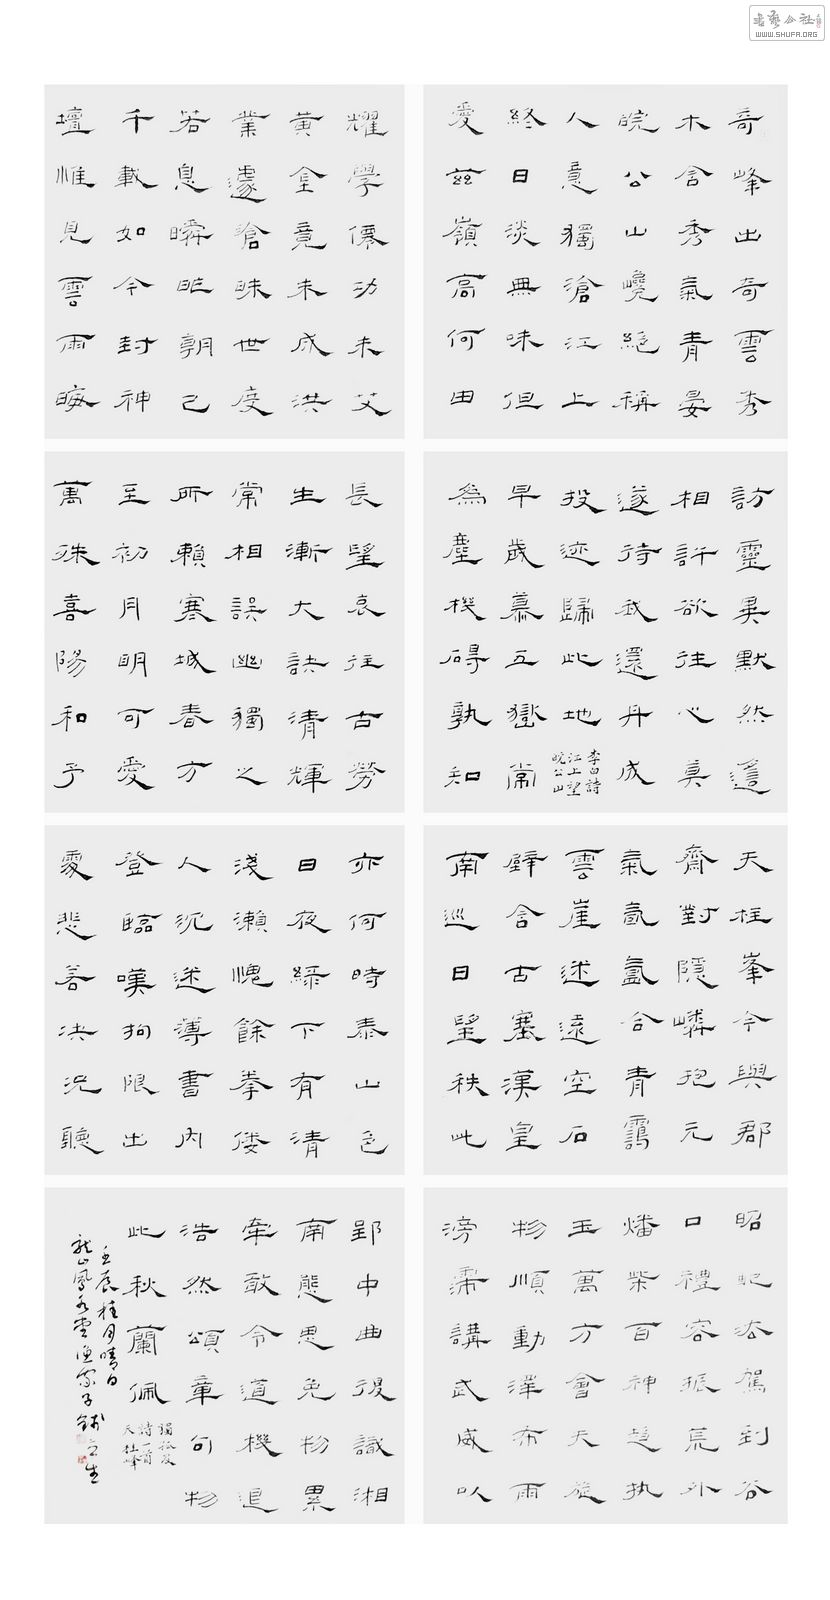 書藝公社
WWW.SHUFA.ORG
奇峰出奇雲秀
木含秀氣青晏
皖公山巉絕稱
人意獨滄江上
終日淡無味但
愛茲嶺高何由
訪靈異默然遙
相許欲往心莫
遂待我還丹成
投迹歸此地
李白詩
江上望
皖公山
早歲慕五嶽常
為塵機碍孰知
天柱峯今與郡
齋對隱嶙抱元
氣氤氳合青靄
雲崖迷遠空石
壁含古塞漢皇
南巡日望秩此
昭配法駕到谷
口禮容振荒外
燔柴百神趨执
玉萬方會天旋
物順動澤布雨
滂霈講武威以
耀學僊功未艾
黃金竟未成洪
業遽滄昧世度
若息瞬昨朝已
千載如今封神
壇惟見雲雨晦
長望哀往古勞
生漸大訣清輝
常相誤幽獨之
所賴寒城春方
至初月明可愛
萬殊喜陽和予
亦何時泰山色
日夜綠下有清
淺瀨愧餘拳倭
人沉迷薄書內
登臨嘆拘限出
處悲善决況聽
郢中曲復識湘
南態思免物累
牽敢令道機退
浩然頌章句物
此秋蘭佩
詩一首
天柱峰
壬辰桂月晴日
龍山鳳水堂漁家子錢立生